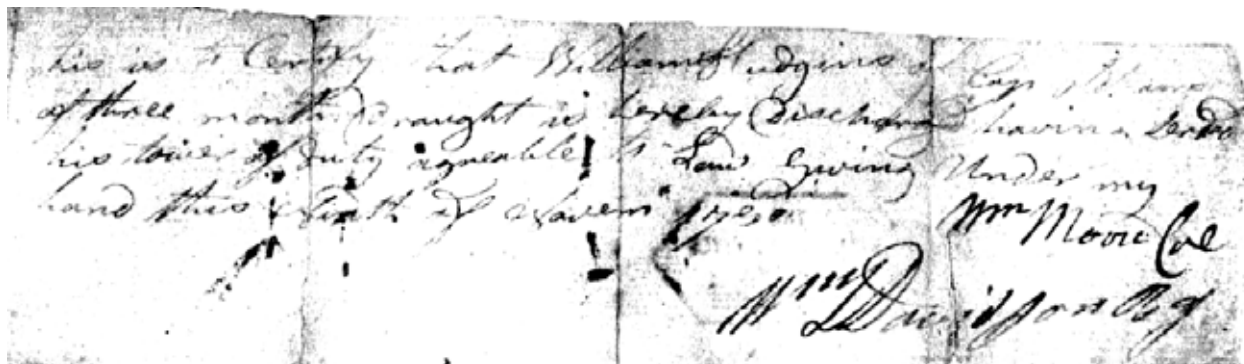 his is to Certify that William Hudgins of Cap
of three month Draught is hereby Discharged having Served
his tower of Duty agreable to Law Giving Under my
hand this Ninth of Novem 1780
Wm Moore Col
Wm Davidson